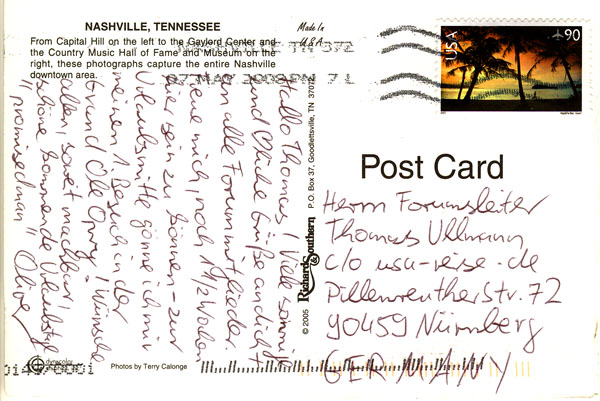 NASHVILLE, TENNESSEE
From Capital Hill on the left to the Gaylord Center and
the Country Music Hall of Fame and Museum on the
right, these photographs capture the entire Nashville
downtown area.
Made in
U.S.A.
NASHVILLE TN 372
07 MAY 2008 PM 7 L
USA
90
Hallo Thomas! Viele sonnige
und Grüße an dich &
an alle Forummitglieder.
freue mich, noch 1 1/2 Wochen
hier sein zu können - zur
Urlaubsmitte gönne ich mir
meinen 1. Besuch in der
Grand Ole Opry! Wünsche
allen, soweit machbar,
schöne kommende Urlaubstage
"promisedman" Olive
Post Card
Herrn Forumsleiter
Thomas Ullmann
c/o usa-reise.de
Pillenreuther Str. 72
90459 Nürnberg
GERMANY
© 2005 Richard & Southern P.O. Box 37, Goodlettsville, TN 37072
dynacolor
Photos by Terry Calonge